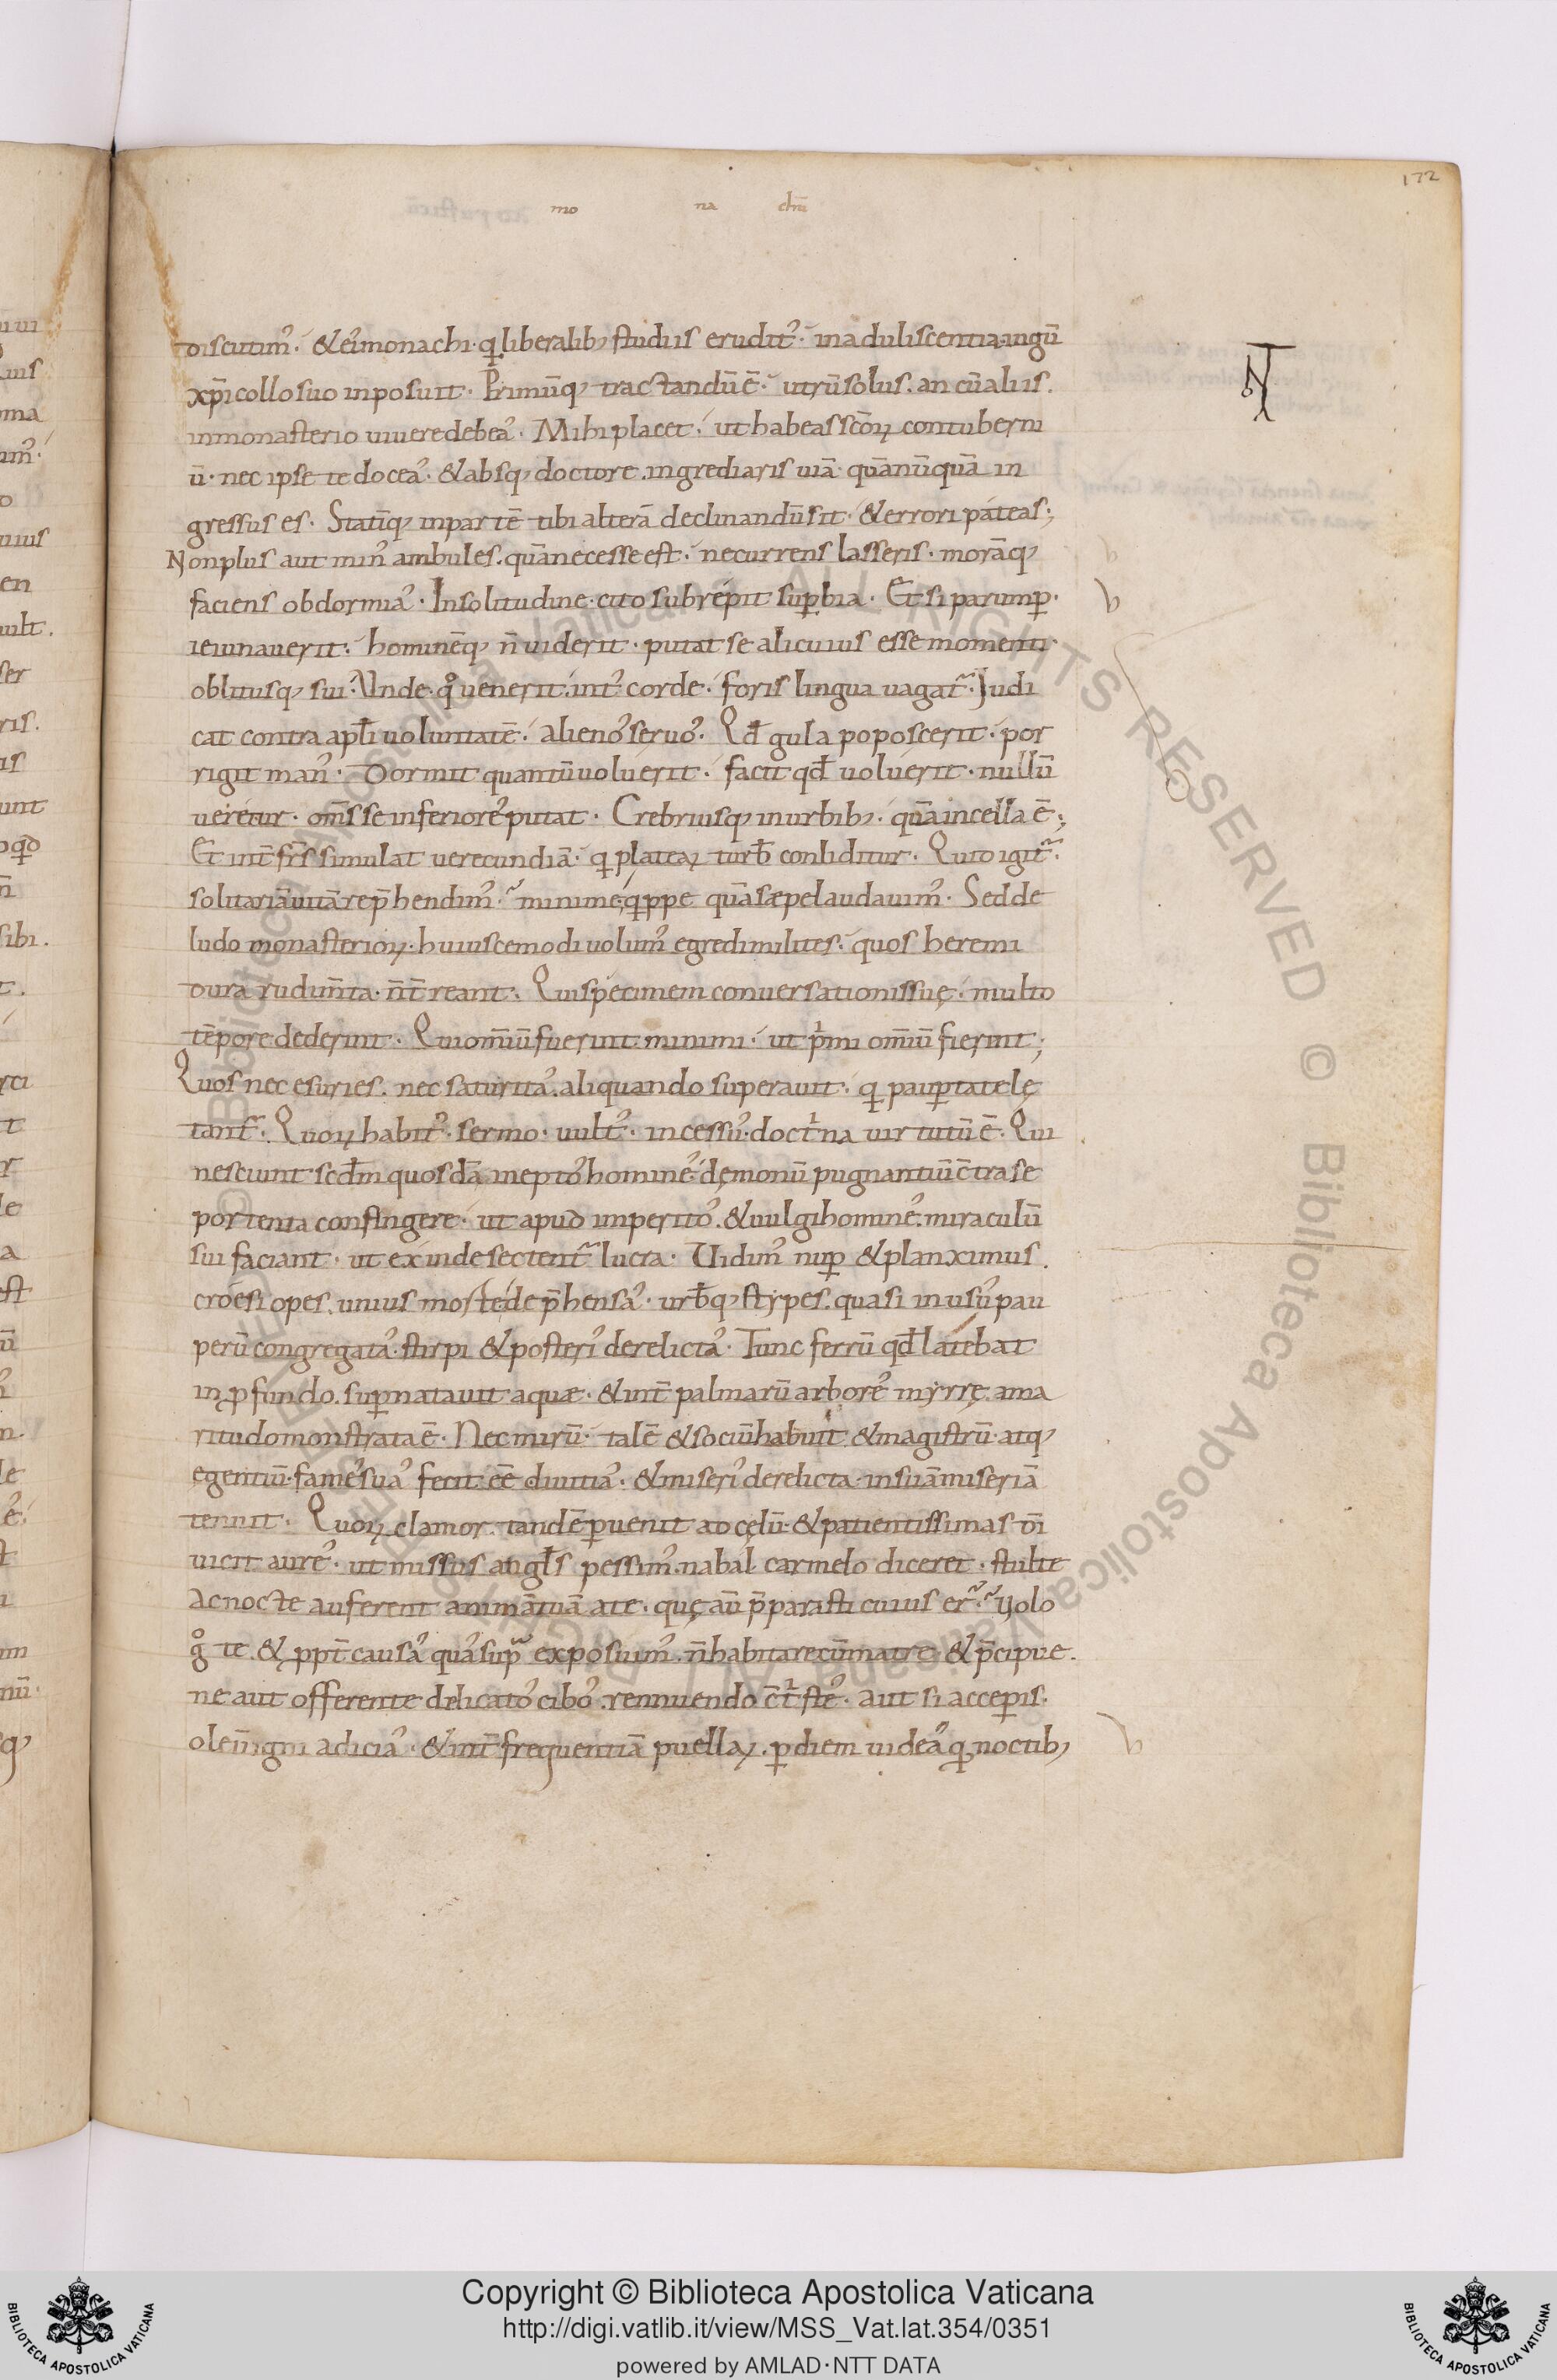 172
mo na chū
discutim᾽. &ei᾽monachi. q̣liberalib; studiis erudit᾽. inaduliscentia.ingū
xp̄icollosuo inposuit. Primūq; tractandūē. utrūsolus. an cūaliis.
inmonasterio uiueredebea᾽. Mihi placet. ut habeas sc̄oꝝ contuberni
ū. nec ipse te docea᾽. &absq; doctore. ingrediaris uiā. quānūquā in
gressus es. Statīq; inpartē tibi alterā declinandūsit. &errori páteas;
Nonplus aut min᾽ ambules. quānecesse est. necurrens lasseris. morāq;
faciens obdormia᾽. Insolitudine. cito subrépit suꝑbia. Et si parumꝑ.
ieiunauerit. hominēq; n̄ uiderit. putat se alicuius esse momenti.
oblitusq; sui. Unde. q̊ uenerit. int᾽ corde. foris lingua uagat᾽. Judi
cat contra apl̄i uoluntatē. alieno᾽seruo᾽. Qđ gula poposcerit. por
rigit man᾽. Dormit quantūuoluerit. facit qđ uoluerit. nullū
uerétur. om̄s se inferiore᾽putat. Crebriusq; inurbib;. quāincella ē;
Et int̄ fr̄s simulat uerecundiā. q̣ plateaꝝ turƀ conliditur. Quid igit᾽.
solitariāuitārep̄hendim᾽. minime. q̣ppe quāsæpelaudauim᾽. Sedde
ludo monasterioꝝ. huiuscemodi uolum᾽ egredimilites. quos heremi
dura rudim̄ta. n̄ t̄reant. Quispécimem conuersationissuę. multo
tēpore dederint. Quiomīufuerint. minimi. ut pͥmi omīū fierint;
Quos nec esuries. nec saturita᾽. aliquando superauit. q̣ pauꝑtatelę
tant᾽. Quoꝝ habit᾽. sermo. uult᾽. incessu᾽. doctͥna uirtutū ē. Qui
nesciunt secđm quosdā. inepto᾽homine᾽. dęmonū pugnantiū c̄tra se
portenta confingere. ut apud imperito᾽. &uulgihomine᾽. miraculū
sui faciant. ut exinde sectent᾽ lucra. Uidim᾽ nuꝑ &planximus.
croesi opes. unius morte dep̄hensa᾽. urƀq; stypes. quasi inusu᾽pau
perū congregata᾽. stirpi &posteri᾽ derelicta᾽. Tunc ferrū qđ latebat
inꝓfundo. suꝑnatauit aquæ. &int̄ palmarū arbore᾽ myrrę. ama
ritudo monstrata ē. Nec mirū. talē &sociū habuit &magistrū. atq;
egentiū. fame᾽sua᾽ fecit eē diuitia᾽. &miseri᾽ derelicta. insuāmiseriā
tenuit. Quoꝝ clamor. tandē ꝑuenit ad cęlū. &patientissimas dī
uicit aure᾽. ut missus angl̄s pessim᾽. nabal carmelo diceret. stulte
ac nocte auferent animātuā ate. quę aū p̄parasti cuius er᾽. Uolo
g̊ te. & ꝓpt̄ causa᾽ qua᾽ supᵃ exposuim᾽. n̄habitarecūmatre. &p̄cipue.
ne aut offerente delicato᾽ cibo᾽. rennuendo c̄tͥste᾽. aut si acceꝑis.
oleūigni adicia᾽. &int̄ frequentiā puellaꝝ. ꝑdiem uidea᾽ q̣ noctib;
Copyright © Biblioteca Apostolica Vaticana
http://digi.vatlib.it/view/MSS_Vat.lat.354/0351
powered by AMLAD·NTT DATA
BIBLIOTECA APOSTOLICA VATICANA
BIBLIOTECA APOSTOLICA VATICANA